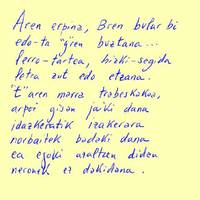 Aren erpina, Bren bular bi
edo-ta "g"ren buztana...
ferro-tartea, bizki-segida
letra zut edo etzana.
"t"aren marra trabeskakoa,
arpoi gisan jaiki dana
idazkeratik izakerara
norbaitek badaki dana
ea egoki azaltzen didan
neronek ez dakidana.